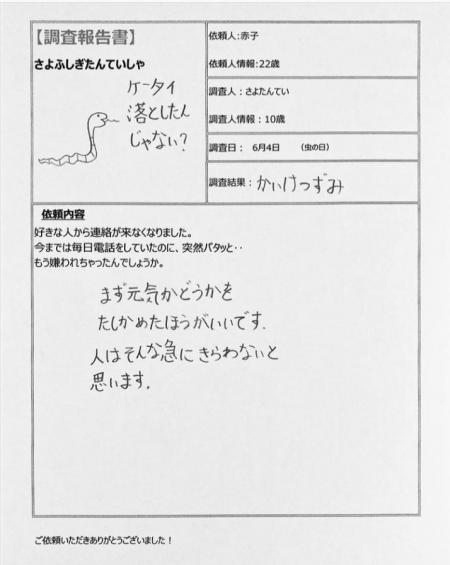 【調査報告書】
さよふしぎたんていしゃ
ケータイ
落としたん
じゃない?
依頼人:赤子
依頼人情報:22歳
調査人:さよたんてい
調査人情報:10歳
調査日: 6月4日 (虫の日)
調査結果:かいけつずみ
依頼内容
好きな人から連絡が来なくなりました。
今までは毎日電話をしていたのに、突然パタッと‥
もう嫌われちゃったんでしょうか。
まず元気かどうかを
たしかめたほうがいいです.
人はそんな急にきらわないと
思います.
ご依頼いただきありがとうございました!